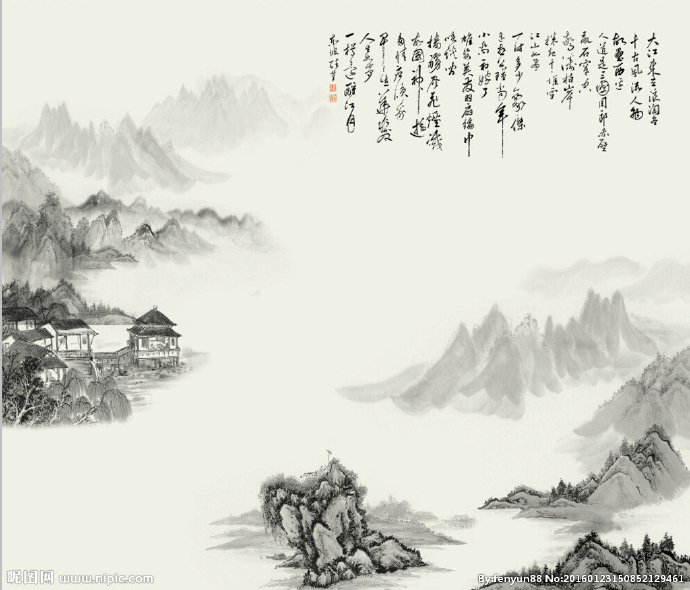 大江東去浪淘尽
千古風流人物
故壘西邊
人道是三國周郎赤壁
亂石穿空
驚濤拍岸
捲起千堆雪
江山如畫
一時多少豪傑
遙想公瑾當年
小喬初嫁了
雄姿英發羽扇綸巾
談笑間
檣櫓灰飛煙滅
故國神遊
多情應笑我
早生華髮
人生如夢
一樽還酹江月
東坡
昵图网 www.nipic.com
By:fenyun88 No:20160123150852129461